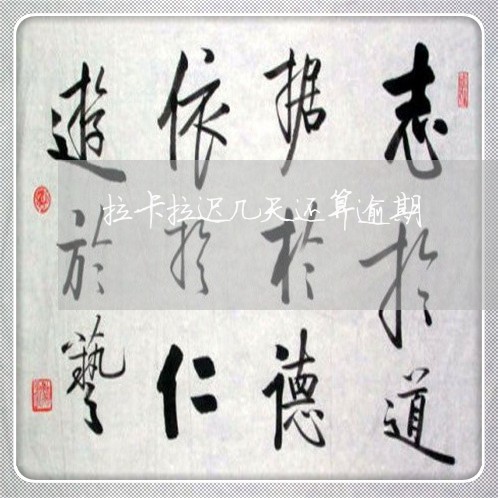 志於道
据於德
依於仁
遊於藝
拉卡拉迟几天还算逾期